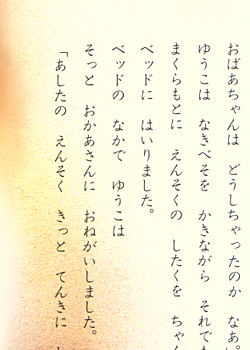 おばあちゃんは どうしちゃったのか なあ。
ゆうこは なきべそを かきながら それでも
まくらもとに えんそくの したくを ちゃ
ベッドに はいりました。
ベッドの なかで ゆうこは
そっと おかあさんに おねがいしました。
「あしたの えんそく きっと てんきに